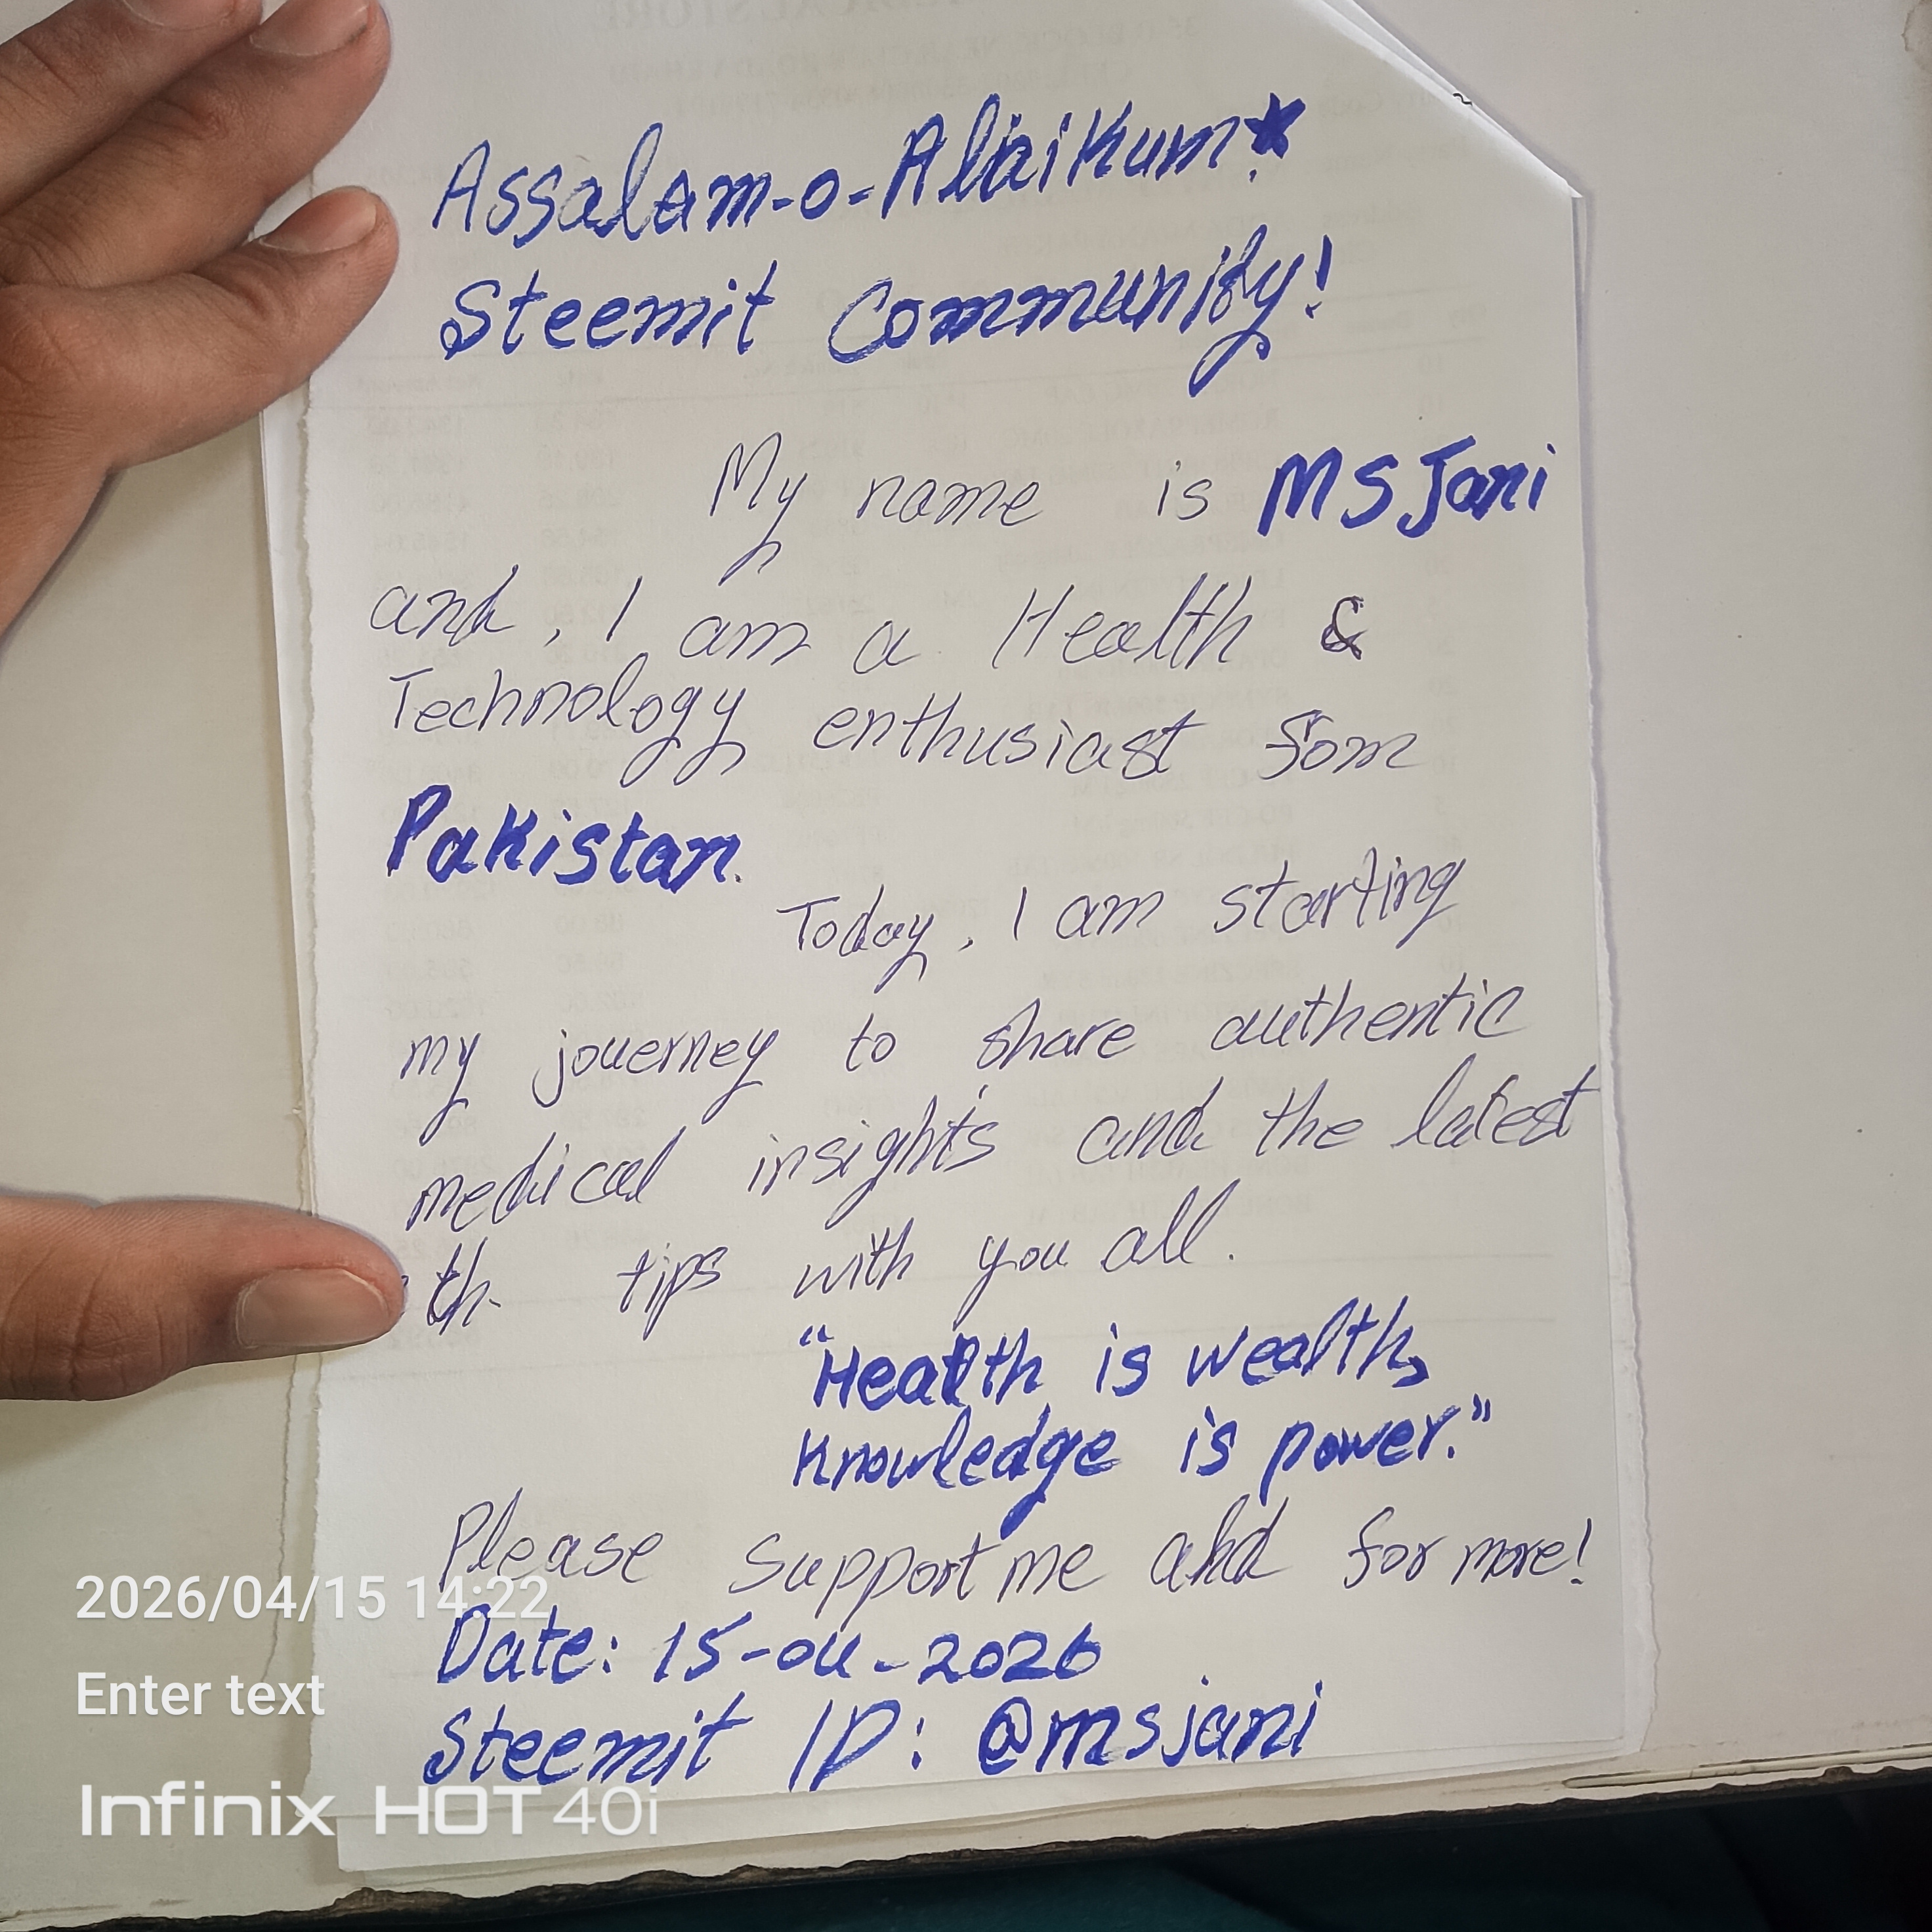 Assalam-o-Alaikum*!
Steemit Community!
My name is MS Jani
and, I am a Health &
Technology enthusiast fom
Pakistan.
Today, I am starting
my jouerney to share authentic
medical insights and the latest
th tips with you all.
"Health is wealth,
Knowledge is power."
Please support me ahd for more!
Date: 15-04-2026
Steemit ID: @msjani
2026/04/15 14:22
Enter text
Infinix HOT 40i